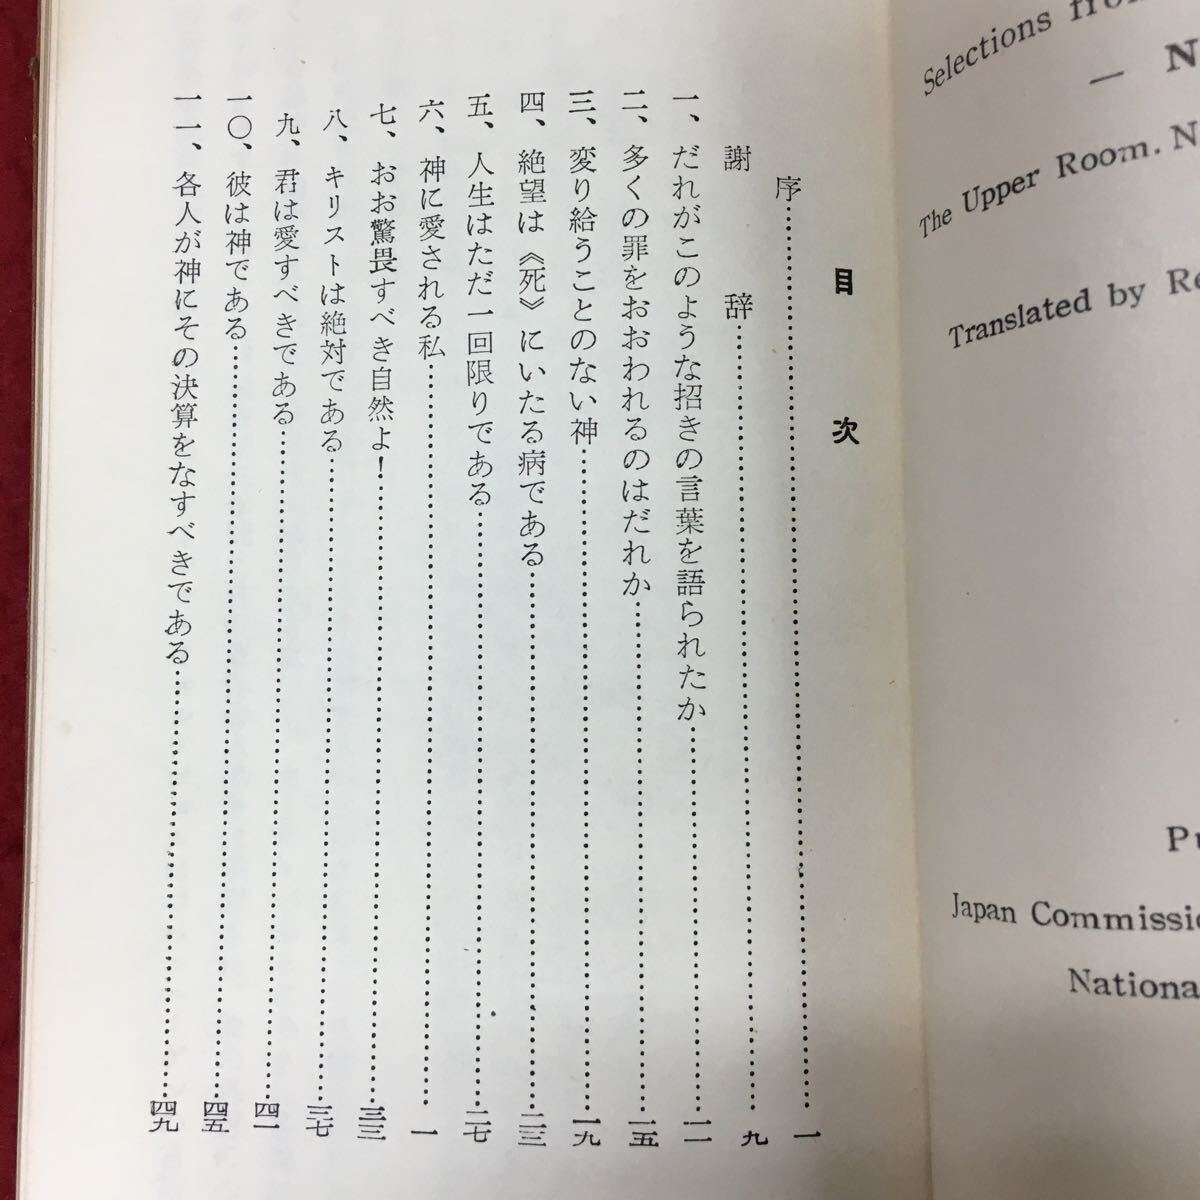 Selections from
— N
The Upper Room. N
Translated by Re
Pu
Japan Commissio
Nationa
目次
序……一
謝辞……九
一、だれがこのような招きの言葉を語られたか……一一
二、多くの罪をおおわれるのはだれか……一五
三、変り給うことのない神……一九
四、絶望は《死》にいたる病である……二三
五、人生はただ一回限りである……二七
六、神に愛される私……一
七、おお驚畏すべき自然よ！……三三
八、キリストは絶対である……三七
九、君は愛すべきである……四一
一〇、彼は神である……四五
一一、各人が神にその決算をなすべきである……四九